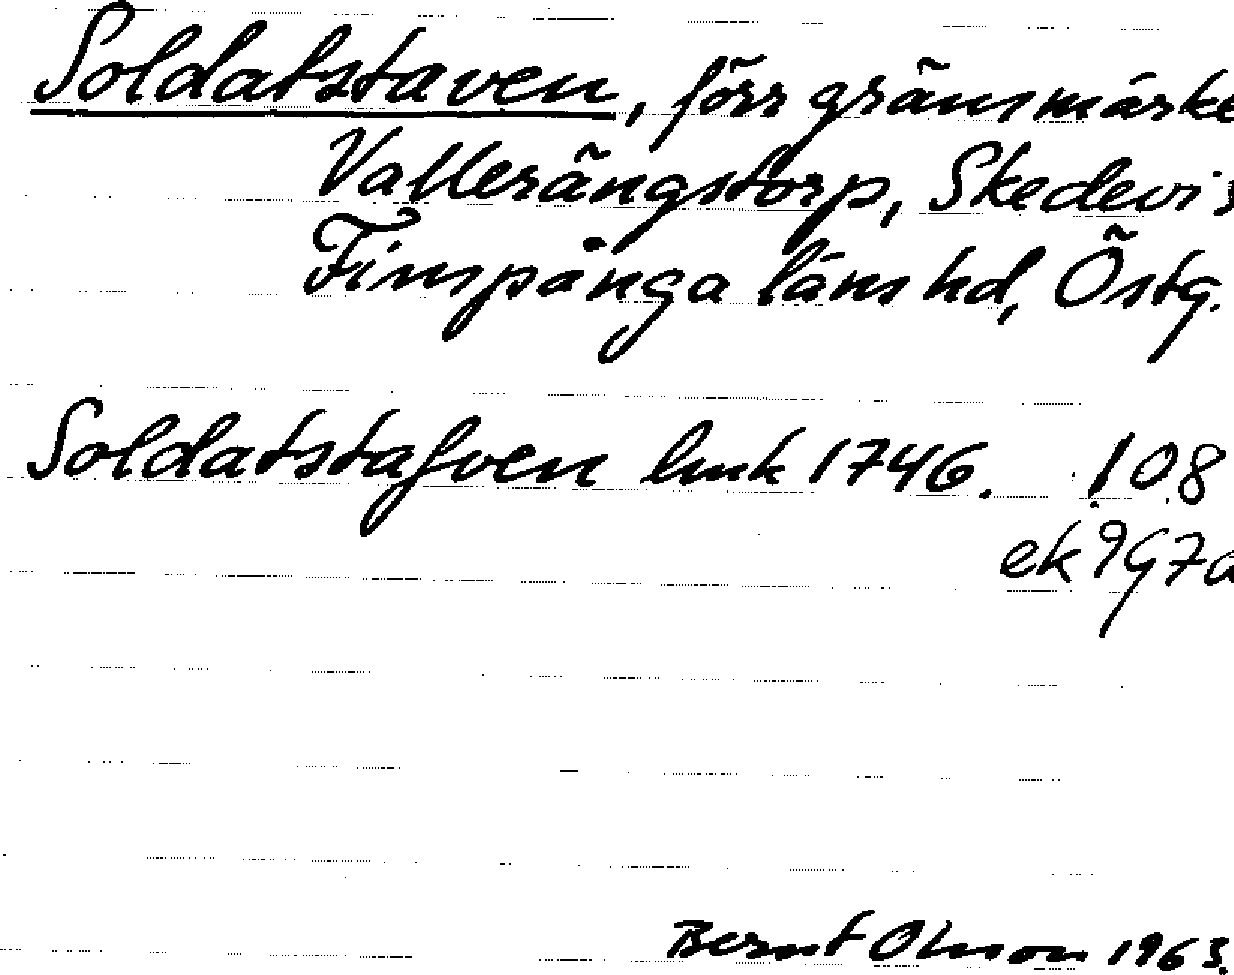 Soldatstaven, förr gränsmärke
Vallerängstorp, Skedevi s
Finspånga läns hd, Östg.
Soldatstafven lmk 1746. 108
ek 9G7a
Bernt Olsson 1963.